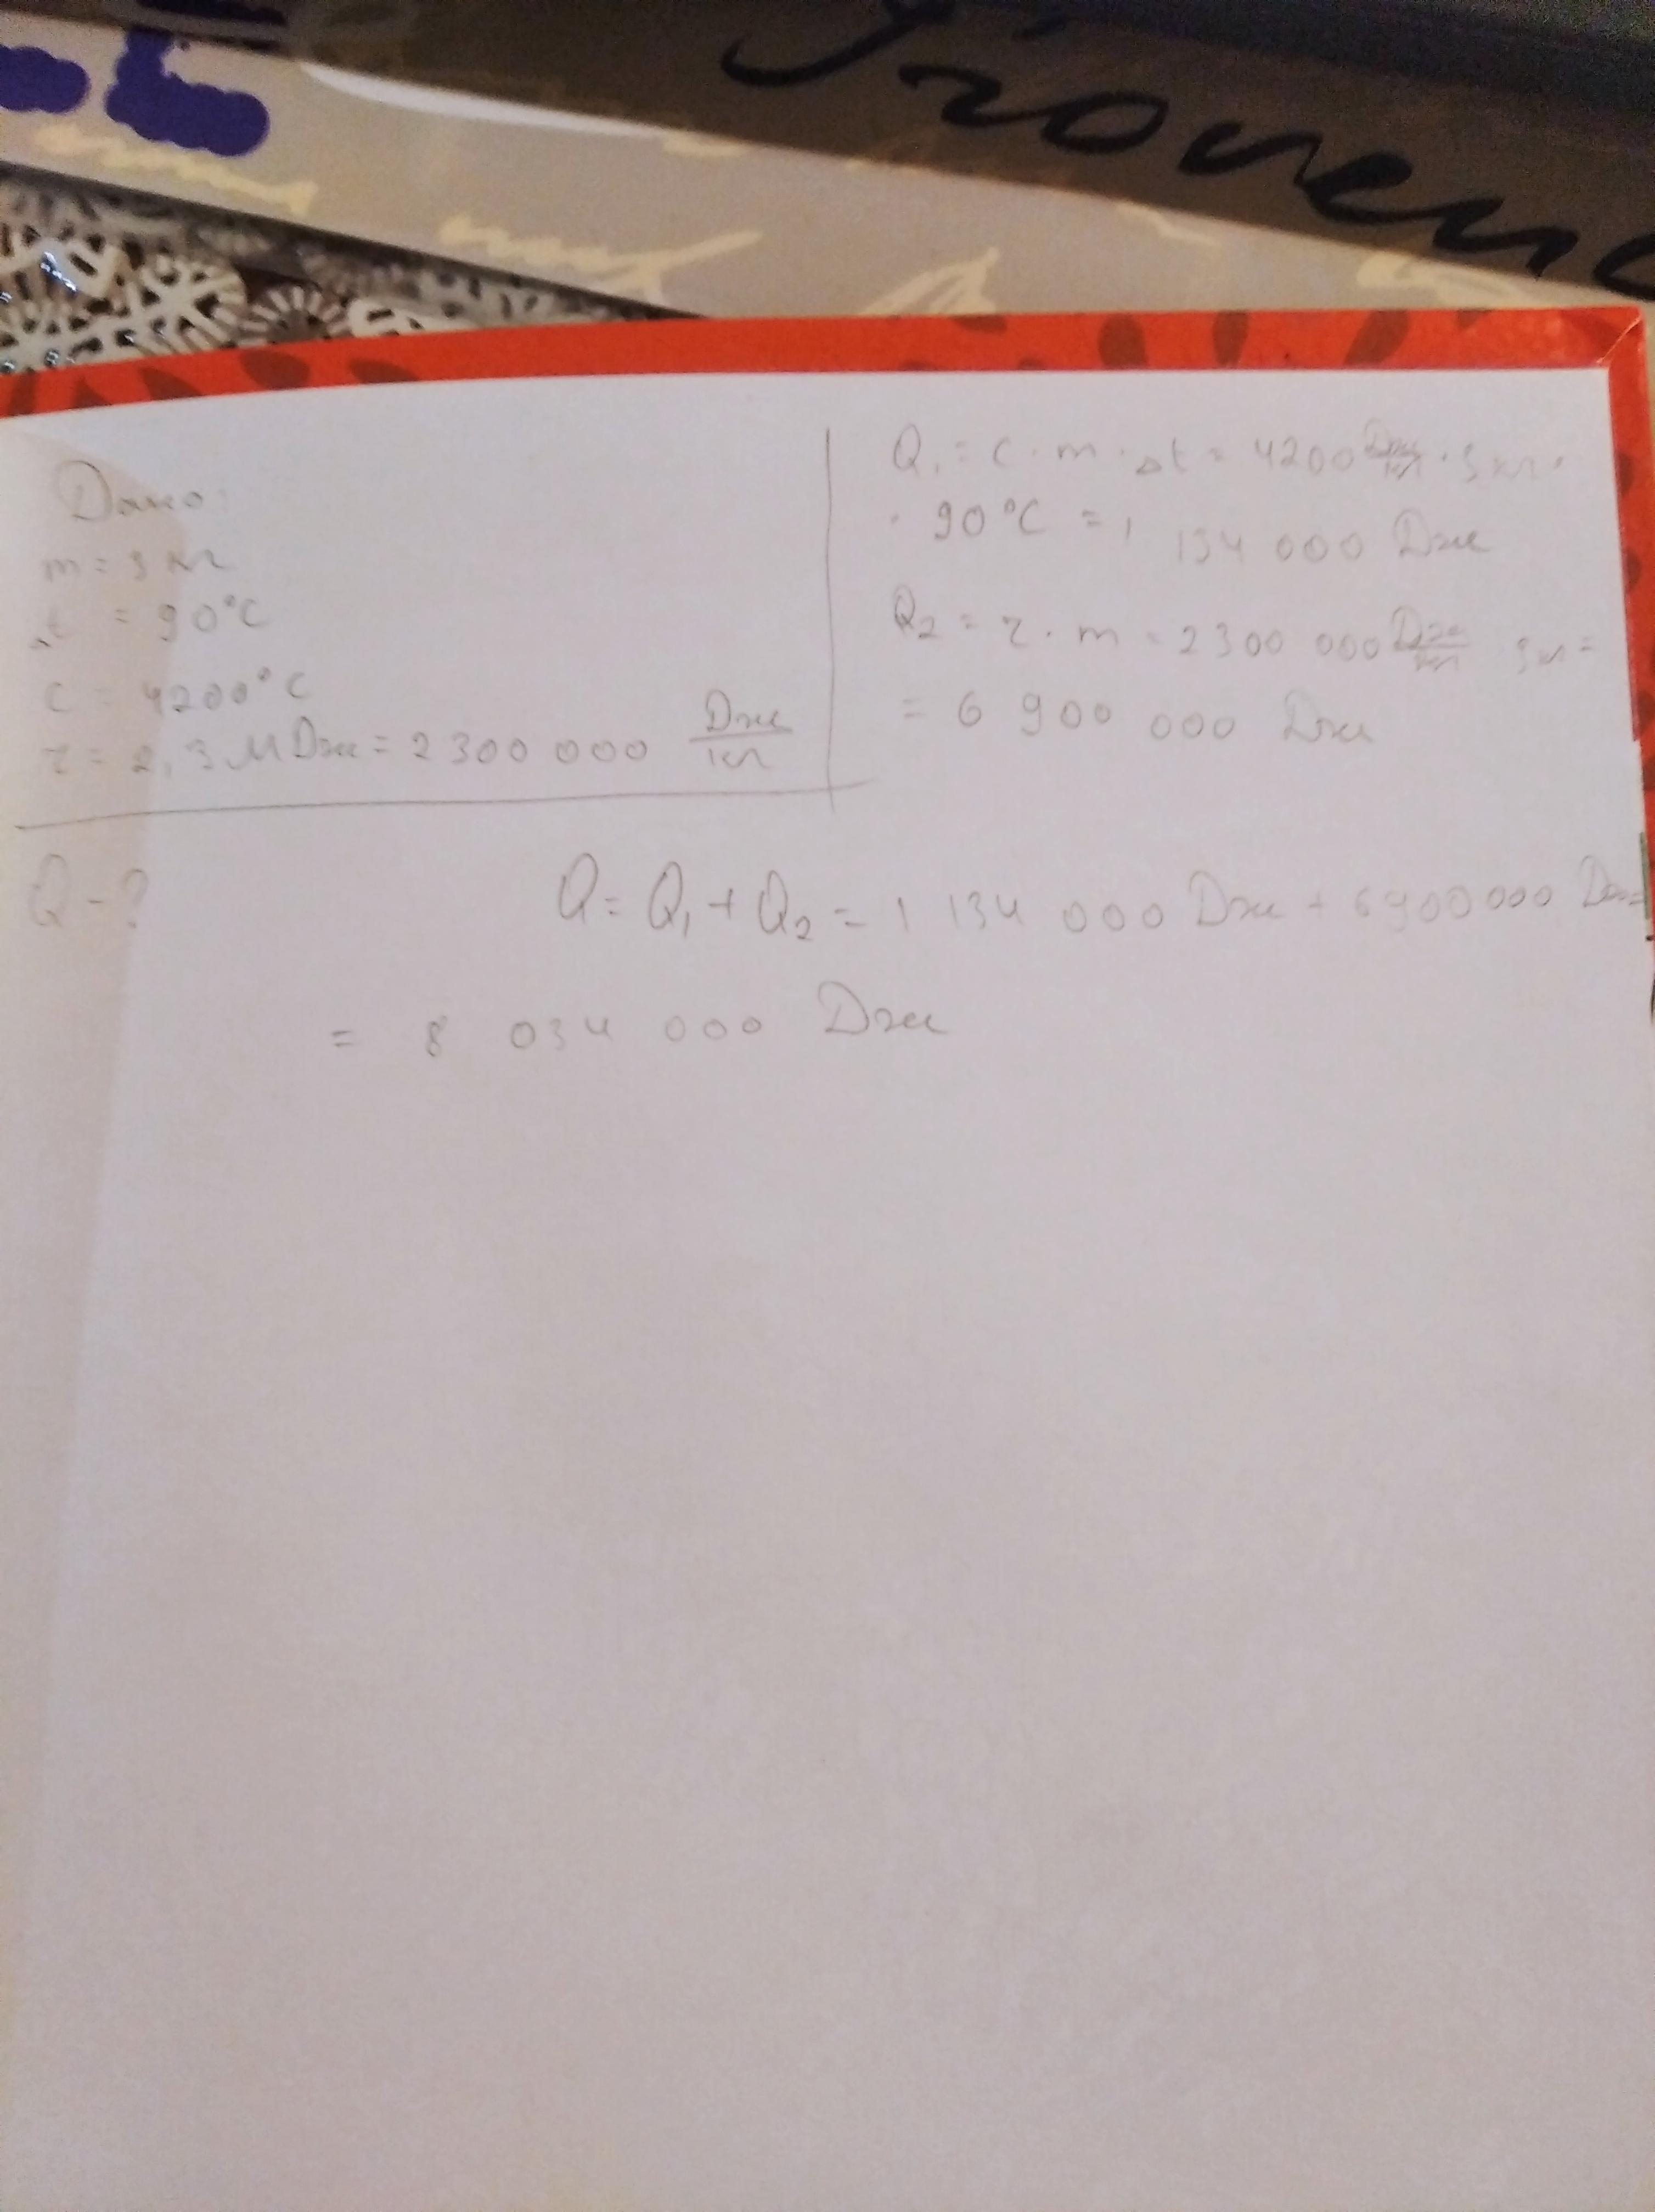 Proven
Дано:
m = 3 кг
Δt = 90°C
c = 4200°C
r = 2,3 МДж = 2300 000 Дж/кг
Q - ?
Q₁ = c · m · Δt = 4200 Дж/кг · 3 кг ·
· 90°C = 1 134 000 Дж
Q₂ = r · m = 2300 000 Дж/кг 3кг =
= 6 900 000 Дж
Q = Q₁ + Q₂ = 1 134 000 Дж + 6900000 Дж =
= 8 034 000 Дж